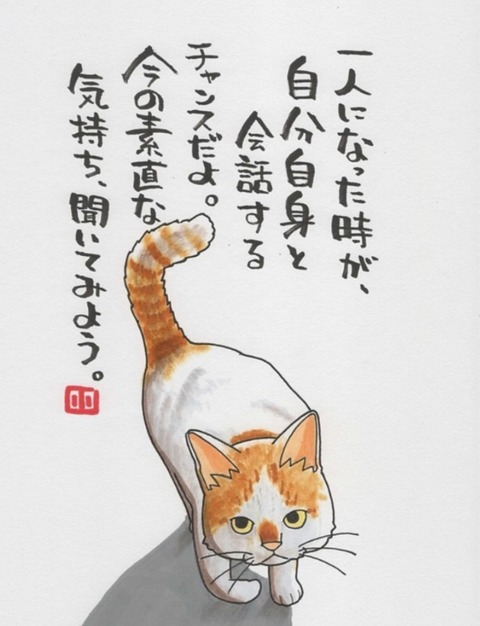 一人になった時が、
自分自身と
会話する
チャンスだよ。
今の素直な
気持ち、聞いてみよう。